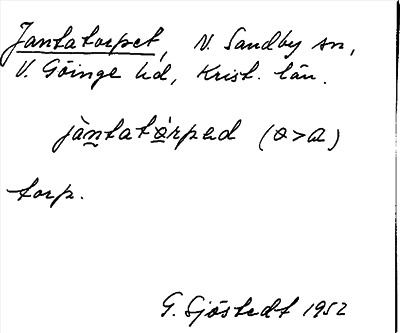 Jantatorpet, N. Sandby sn,
V. Göinge hd, Krist. län.
jàntatårpəd (ə>a)
torp.
G. Sjöstedt 1952